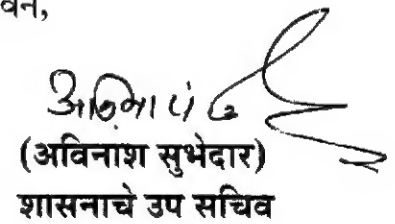 वन,
(अविनाश सुभेदार)
शासनाचे उप सचिव